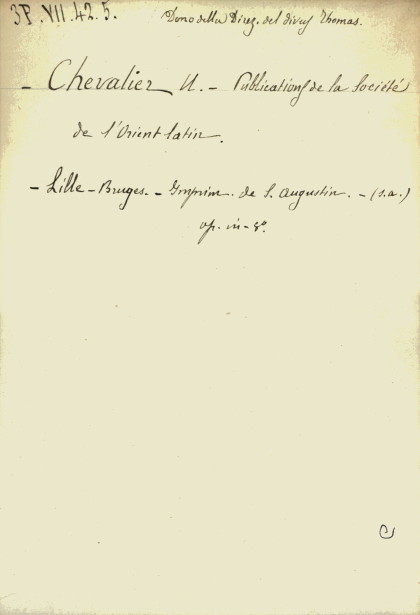 3P.VII.42.5.
Dono della Direz. del divus Thomas.
- Chevalier U. - Publications de la Société
de l'Orient latin.
- Lille - Bruges. - Imprim. de S. Augustin. - (s.a.)
op. in-8°.